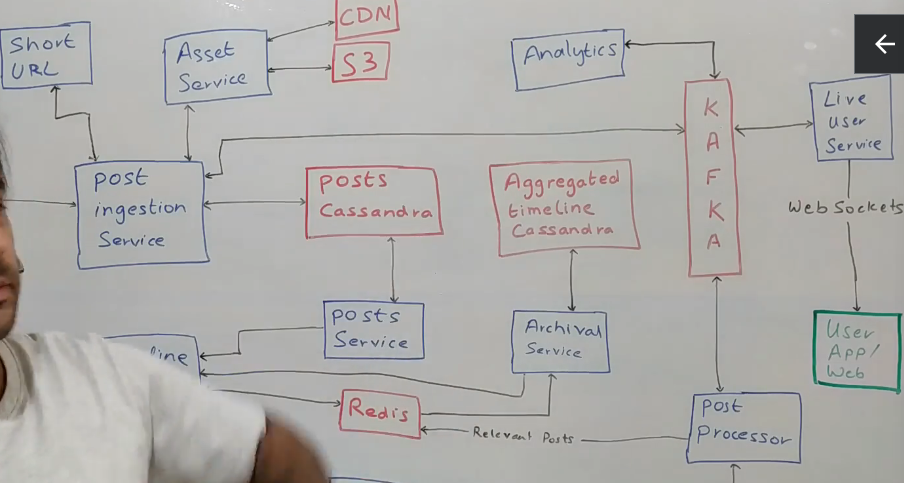 CDN
Short
URL
Asset
Service
S3
Analytics
K
A
F
K
A
Live
User
Service
post
ingestion
Service
posts
Cassandra
Aggregated
timeline
Cassandra
Web Sockets
posts
Service
Archival
Service
User
App/
Web
line
Redis
Relevant Posts
post
processor